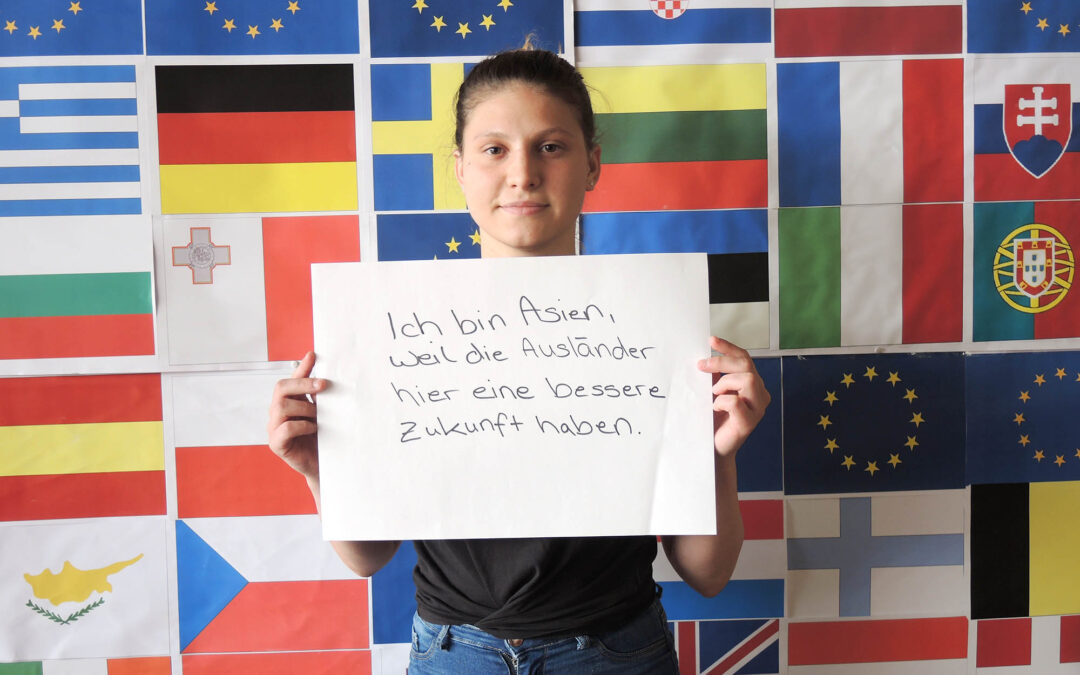 Ich bin Asien,
weil die Ausländer
hier eine bessere
Zukunft haben.